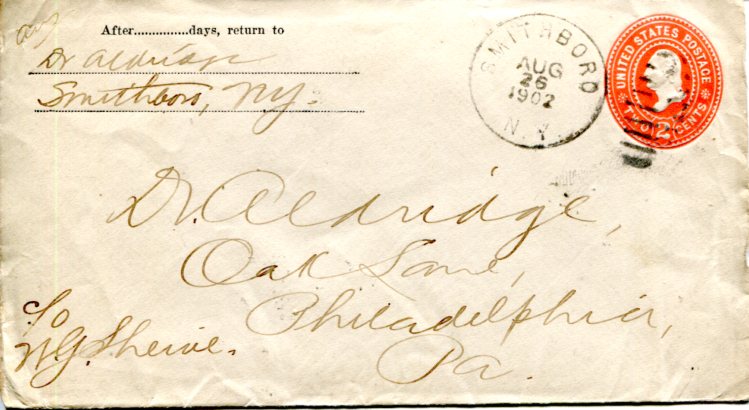 After..............days, return to
Dr Aldridge
Smithboro, N.Y.
SMITHBORO
AUG
26
1902
N.Y.
UNITED STATES POSTAGE
TWO 2 CENTS
Dr. Aldridge,
Oak Lane,
Philadelphia,
Pa.
c/o
N.G.